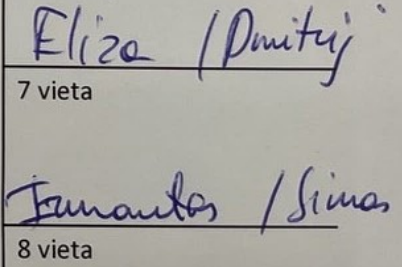 Eliza / Dmitrij
7 vieta
Irmantas / Simas
8 vieta